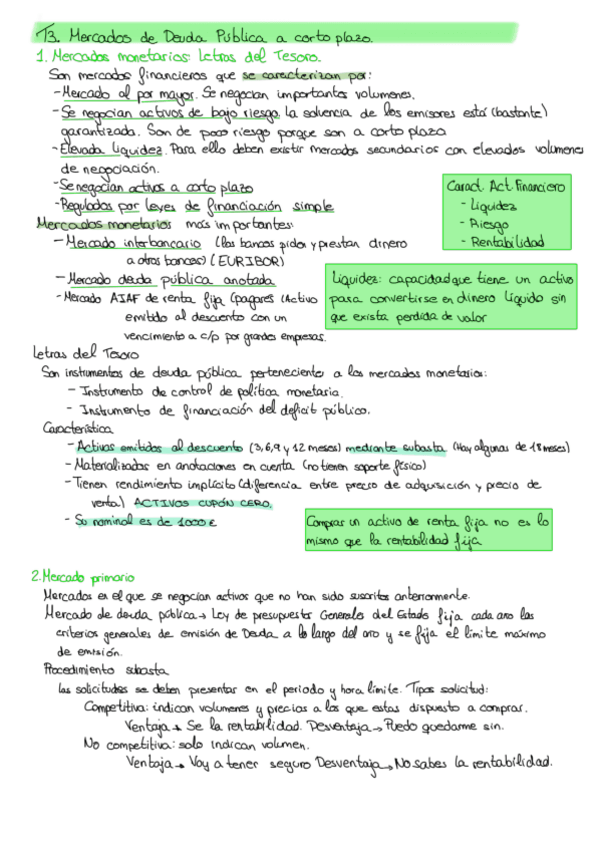 T3. Mercados de Deuda Pública a corto plazo.
1. Mercados monetarios: Letras del Tesoro.
Son mercados financieros que se caracterizan por:
- Mercado al por mayor. Se negocian importantes volumenes.
- Se negocian activos de bajo riesgo, la solvencia de los emisores está (bastante)
garantizada. Son de poco riesgo porque son a corto plazo
- Elevada liquidez. Para ello deben existir mercados secundarios con elevados volumenes
de negociación.
- Se negocian activos a corto plazo
- Regulados por leyes de financiación simple
Caract. Act. Financiero
- Liquidez
- Riesgo
- Rentabilidad
Mercados monetarios más importantes:
- Mercado interbancario (los bancos piden y prestan dinero
a otros bancos) (EURIBOR)
- Mercado deuda pública anotada
- Mercado AIAF de renta fija (pagares (Activo
emitido al descuento con un
vencimiento a c/p por grandes empresas.
Liquidez: capacidad que tiene un activo
para convertirse en dinero líquido sin
que exista perdida de valor
Letras del Tesoro
Son instrumentos de deuda pública perteneciente a los mercados monetarios:
- Instrumento de control de política monetaria.
- Instrumento de financiación del deficit público.
Característica
- Activos emitidos al descuento (3,6,9 y 12 meses) mediante subasta (Hay algunas de 18 meses)
- Materializados en anotaciones en cuenta (no tienen soporte físico)
- Tienen rendimiento implícito (diferencia entre precio de adquisición y precio de
venta) ACTIVOS CUPÓN CERO.
- Su nominal es de 1000 €
Comprar un activo de renta fija no es lo
mismo que la rentabilidad fija
2. Mercado primario
Mercados en el que se negocian activos que no han sido suscritos anteriormente.
Mercado de deuda pública → Ley de presupuestos Generales del Estado fija cada año los
criterios generales de emisión de Deuda a lo largo del año y se fija el límite máximo
de emisión.
Procedimiento subasta
Las solicitudes se deben presentar en el periodo y hora límite. Tipos solicitud:
Competitiva: indican volumenes y precios a los que estas dispuesto a comprar.
Ventaja → Se la rentabilidad. Desventaja → Puedo quedarme sin.
No competitiva: solo indican volumen.
Ventaja → Voy a tener seguro Desventaja → No sabes la rentabilidad.